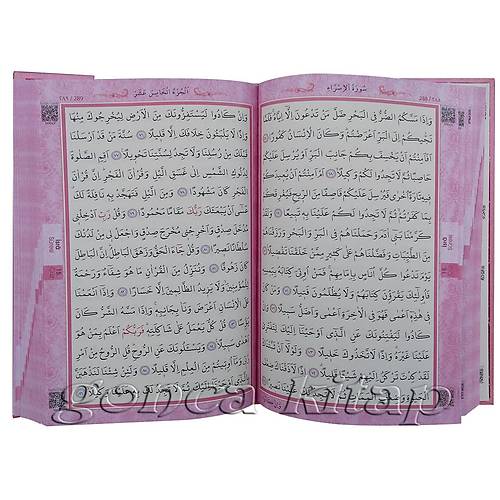 سُورَةُ الْاِسْرَاءِ
288 / ٢٨٨
وَاِذَا مَسَّكُمُ الضُّرُّ فِي الْبَحْرِ ضَلَّ مَنْ تَدْعُونَ اِلَّا اِيَّاهُ فَلَمَّا
نَجّٰيكُمْ اِلَى الْبَرِّ اَعْرَضْتُمْ وَكَانَ الْاِنْسَانُ كَفُورًا
اَفَاَمِنْتُمْ اَنْ يَخْسِفَ بِكُمْ جَانِبَ الْبَرِّ اَوْ يُرْسِلَ عَلَيْكُمْ
حَاصِبًا ثُمَّ لَا تَجِدُوا لَكُمْ وَكِيلًا اَمْ اَمِنْتُمْ اَنْ يُعِيدَكُمْ
فِيهِ تَارَةً اُخْرٰى فَيُرْسِلَ عَلَيْكُمْ قَاصِفًا مِنَ الرِّيحِ فَيُغْرِقَكُمْ
بِمَا كَفَرْتُمْ ثُمَّ لَا تَجِدُوا لَكُمْ عَلَيْنَا بِهِ تَبِيعًا وَلَقَدْ
كَرَّمْنَا بَنِي اٰدَمَ وَحَمَلْنَاهُمْ فِي الْبَرِّ وَالْبَحْرِ وَرَزَقْنَاهُمْ
مِنَ الطَّيِّبَاتِ وَفَضَّلْنَاهُمْ عَلٰى كَثِيرٍ مِمَّنْ خَلَقْنَا تَفْضِيلًا
يَوْمَ نَدْعُوا كُلَّ اُنَاسٍ بِاِمَامِهِمْ فَمَنْ اُوتِيَ كِتَابَهُ بِيَمِينِهِ
فَاُولٰئِكَ يَقْرَؤُنَ كِتَابَهُمْ وَلَا يُظْلَمُونَ فَتِيلًا وَمَنْ كَانَ
فِي هٰذِهِ اَعْمٰى فَهُوَ فِي الْاٰخِرَةِ اَعْمٰى وَاَضَلُّ سَبِيلًا وَاِنْ
كَادُوا لَيَفْتِنُونَكَ عَنِ الَّذِي اَوْحَيْنَا اِلَيْكَ لِتَفْتَرِيَ
عَلَيْنَا غَيْرَهُ وَاِذًا لَاتَّخَذُوكَ خَلِيلًا وَلَوْلَا اَنْ ثَبَّتْنَاكَ
لَقَدْ كِدْتَ تَرْكَنُ اِلَيْهِمْ شَيْئًا قَلِيلًا اِذًا لَاَذَقْنَاكَ
اَلْجُزْءُ الْخَامِسَ عَشَرَ
289 / ٢٨٩
وَاِنْ كَادُوا لَيَسْتَفِزُّونَكَ مِنَ الْاَرْضِ لِيُخْرِجُوكَ مِنْهَا
وَاِذًا لَا يَلْبَثُونَ خِلَافَكَ اِلَّا قَلِيلًا سُنَّةَ مَنْ قَدْ اَرْسَلْنَا
قَبْلَكَ مِنْ رُسُلِنَا وَلَا تَجِدُ لِسُنَّتِنَا تَحْوِيلًا اَقِمِ الصَّلٰوةَ
لِدُلُوكِ الشَّمْسِ اِلٰى غَسَقِ الَّيْلِ وَقُرْاٰنَ الْفَجْرِ اِنَّ قُرْاٰنَ
الْفَجْرِ كَانَ مَشْهُودًا وَمِنَ الَّيْلِ فَتَهَجَّدْ بِهِ نَافِلَةً لَكَ
عَسٰى اَنْ يَبْعَثَكَ رَبُّكَ مَقَامًا مَحْمُودًا وَقُلْ رَبِّ اَدْخِلْنِي
مُدْخَلَ صِدْقٍ وَاَخْرِجْنِي مُخْرَجَ صِدْقٍ وَاجْعَلْ لِي مِنْ لَدُنْكَ
سُلْطَانًا نَصِيرًا وَقُلْ جَاءَ الْحَقُّ وَزَهَقَ الْبَاطِلُ اِنَّ الْبَاطِلَ
كَانَ زَهُوقًا وَنُنَزِّلُ مِنَ الْقُرْاٰنِ مَا هُوَ شِفَاءٌ وَرَحْمَةٌ
لِلْمُؤْمِنِينَ وَلَا يَزِيدُ الظَّالِمِينَ اِلَّا خَسَارًا وَاِذَا اَنْعَمْنَا
عَلَى الْاِنْسَانِ اَعْرَضَ وَنَاٰ بِجَانِبِهِ وَاِذَا مَسَّهُ الشَّرُّ كَانَ
يَؤُسًا قُلْ كُلٌّ يَعْمَلُ عَلٰى شَاكِلَتِهِ فَرَبُّكُمْ اَعْلَمُ بِمَنْ هُوَ
اَهْدٰى سَبِيلًا وَيَسْـَٔلُونَكَ عَنِ الرُّوحِ قُلِ الرُّوحُ مِنْ اَمْرِ
رَبِّي وَمَا اُوتِيتُمْ مِنَ الْعِلْمِ اِلَّا قَلِيلًا وَلَئِنْ شِئْنَا لَنَذْهَبَنَّ
gonca kitap